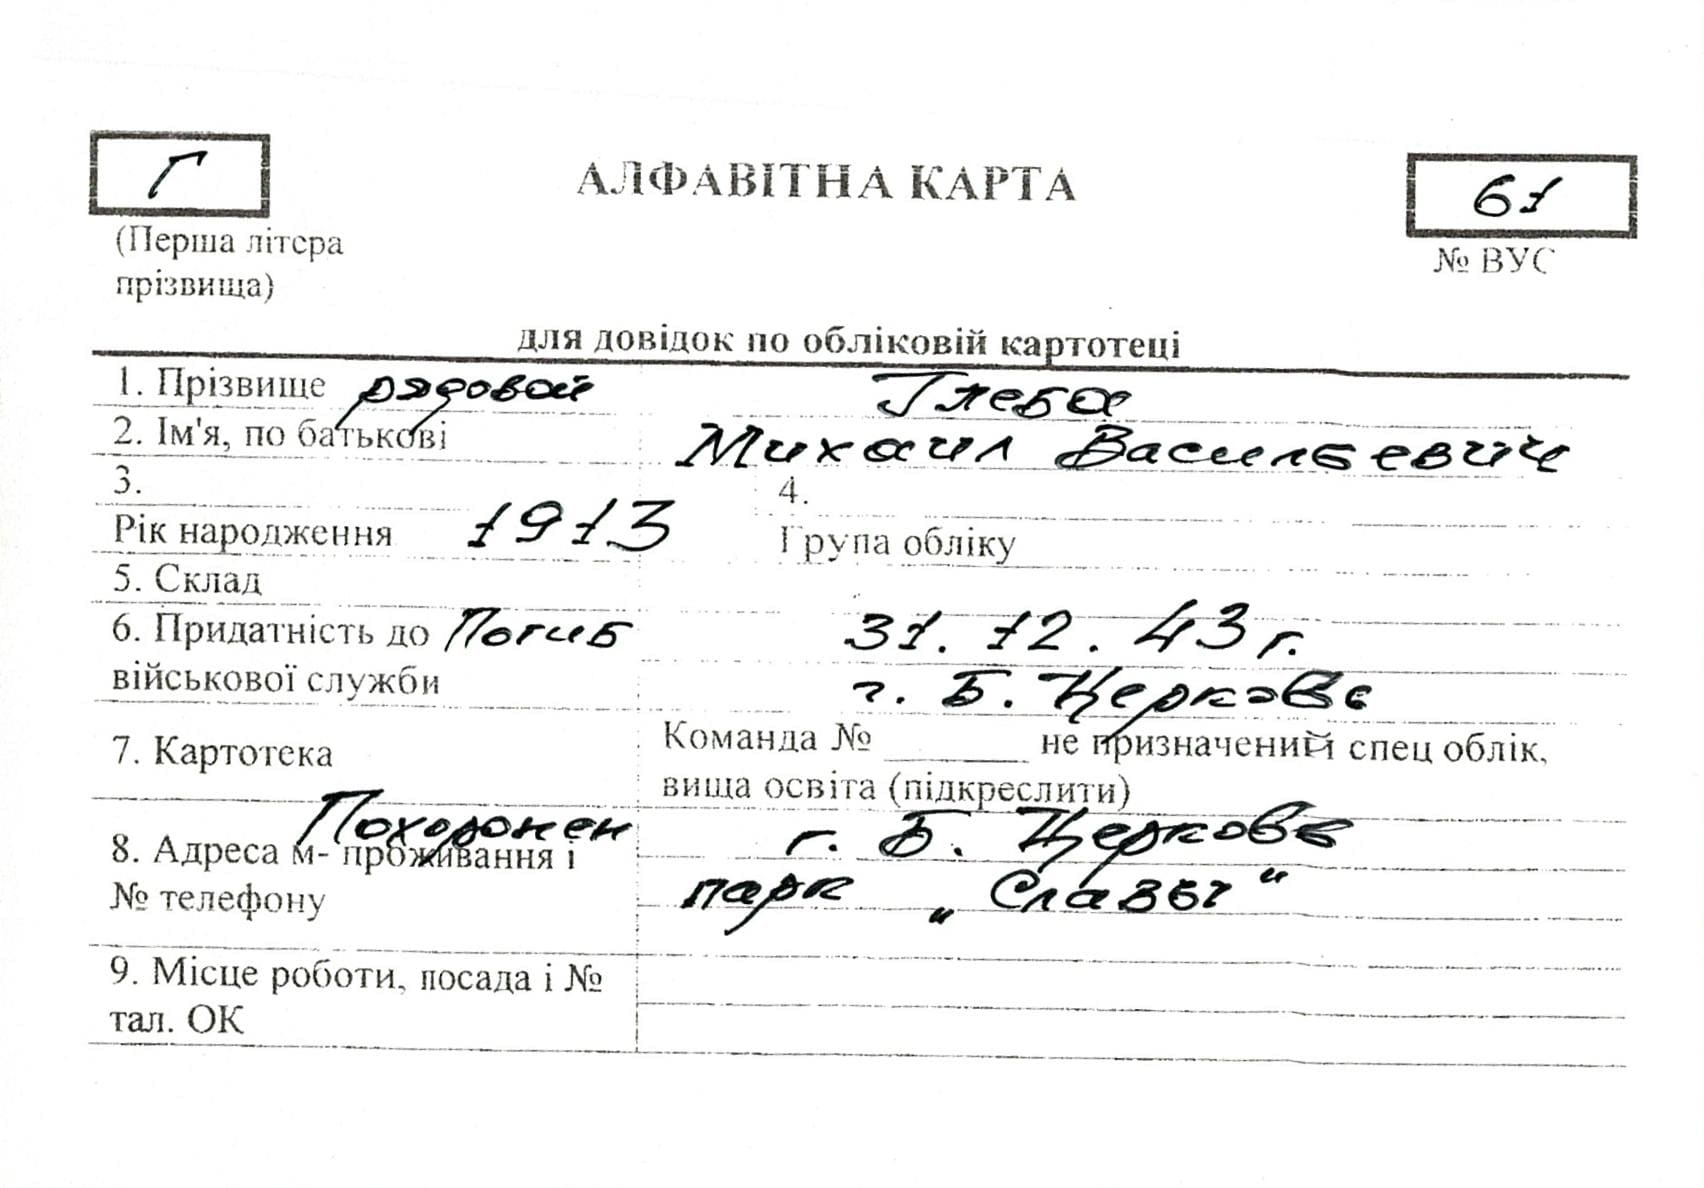 Г
АЛФАВІТНА КАРТА
61
(Перша літера
прізвища)
№ ВУС
для довідок по обліковій картотеці
1. Прізвище рядовой Глеба
2. Ім'я, по батькові Михаил Васильевич
3.
4.
Рік народження 1913
Група обліку
5. Склад
6. Придатність до Погиб 31.12.43г.
військової служби г. Б. Церковь
7. Картотека
Команда № ______ не призначений спец облік,
вища освіта (підкреслити)
Похоронен г. Б. Церковь
8. Адреса м- проживання і
№ телефону
парк „Славы"
9. Місце роботи, посада і №
тал. ОК